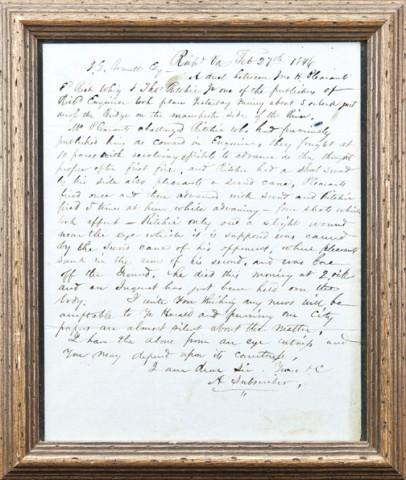 Richd Va Feb 27th 1846
J. G. Bennett Esq — A duel between Jno H. Pleasants
of Rich Whig & Thos Ritchie Jr one of the publishers of
Richd Enquirer took place Yesterday morning about 5 oclock just
across the Bridge on the manchester side of the River.
Mr Pleasants challenged Ritchie who had previously
published him as coward in Enquirer, they fought at
10 paces with revolving pistols to advance as they thought
proper after first fire, and Ritchie had a short sword
to his side also pleasants a sword cane, Pleasants
fired once and then advanced with sword and Ritchie
fired 5 times at him while advancing – four shots which
took effect — Ritchie only rec'd a slight wound
near the eye which it is supposed was caused
by the sword cane of his opponent, when pleasants
sank in the arms of his second, and was
off the Ground, he died this morning at 2 oclk
and an Inquest has just been held on the
body. I write You thinking any news will be
acceptable to Ye Herald and our City
papers are almost silent about the matter,
I have the above from an eye witness and
You may depend upon its correctness,
I am dear Sir. Yours &C
A Subscriber,